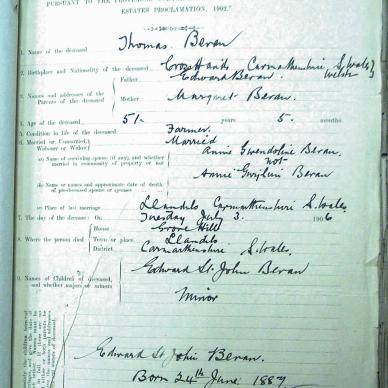 PURSUANT TO THE
ESTATES PROCLAMATION, 1902."
1. Name of the deceased Thomas Bevan
2. Birthplace and Nationality of the deceased Cross Hands Carmarthenshire S. Wales } Welsh
Father Edward Bevan.
3. Names and addresses of the Parents of the deceased
Mother Margaret Bevan.
4. Age of the deceased 51 years 5 months
5. Condition in life of the deceased Farmer.
6. Married or Unmarried, Widower or Widow Married
(a) Name of surviving spouse (if any), and whether married in community of property or not Annie Gwendoline Bevan.
not
Annie Bevan
(b) Name or names and approximate date of death of pre-deceased spouse or spouses
(c) Place of last marriage Llandilo Carmarthenshire S. Wales.
7. The day of the decease: On Tuesday July 3. 1906
House Grove Hill
8. Where the person died Town or place Llandilo
District Carmarthenshire S. Wales.
9. Names of Children of deceased, and whether majors or minors
Edward St. John Bevan
Minor
Edward St John Bevan.
Born 24th June 1887